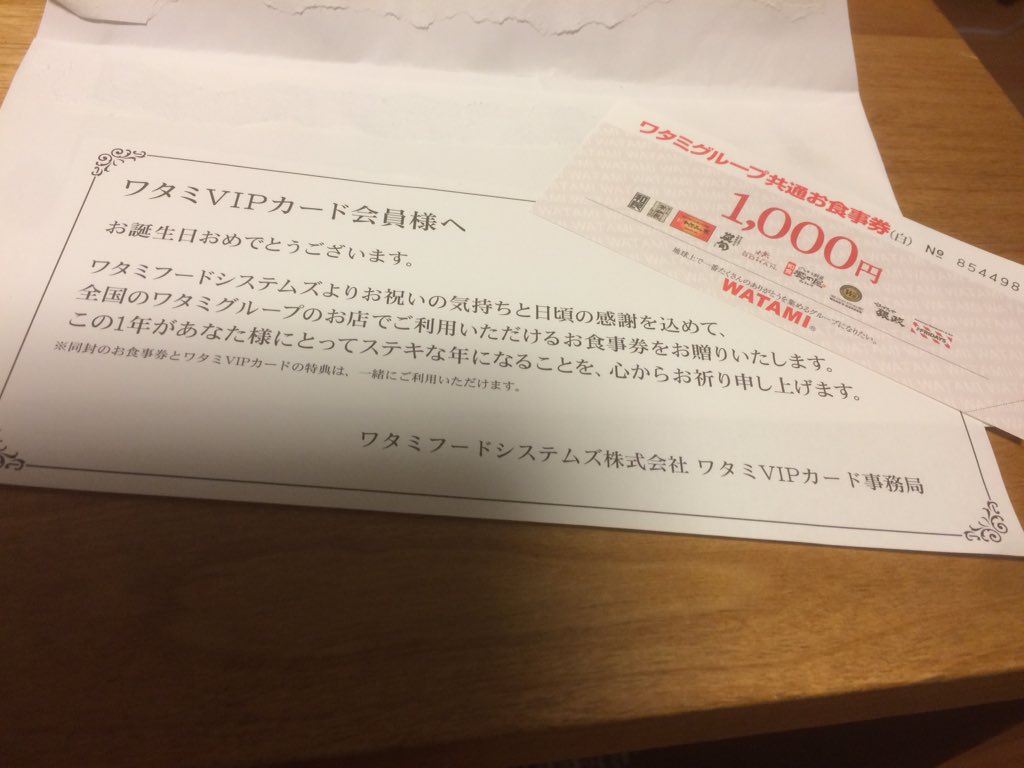 ワタミVIPカード会員様へ
お誕生日おめでとうございます。
ワタミフードシステムズよりお祝いの気持ちと日頃の感謝を込めて、
全国のワタミグループのお店でご利用いただけるお食事券をお贈りいたします。
この1年があなた様にとってステキな年になることを、心からお祈り申し上げます。
※同封のお食事券とワタミVIPカードの特典は、一緒にご利用いただけます。
ワタミフードシステムズ株式会社 ワタミVIPカード事務局
ワタミグループ共通お食事券(白) № 854498
1,000円
地球上で一番たくさんのありがとうを集めるグループになりたい。
WATAMI®